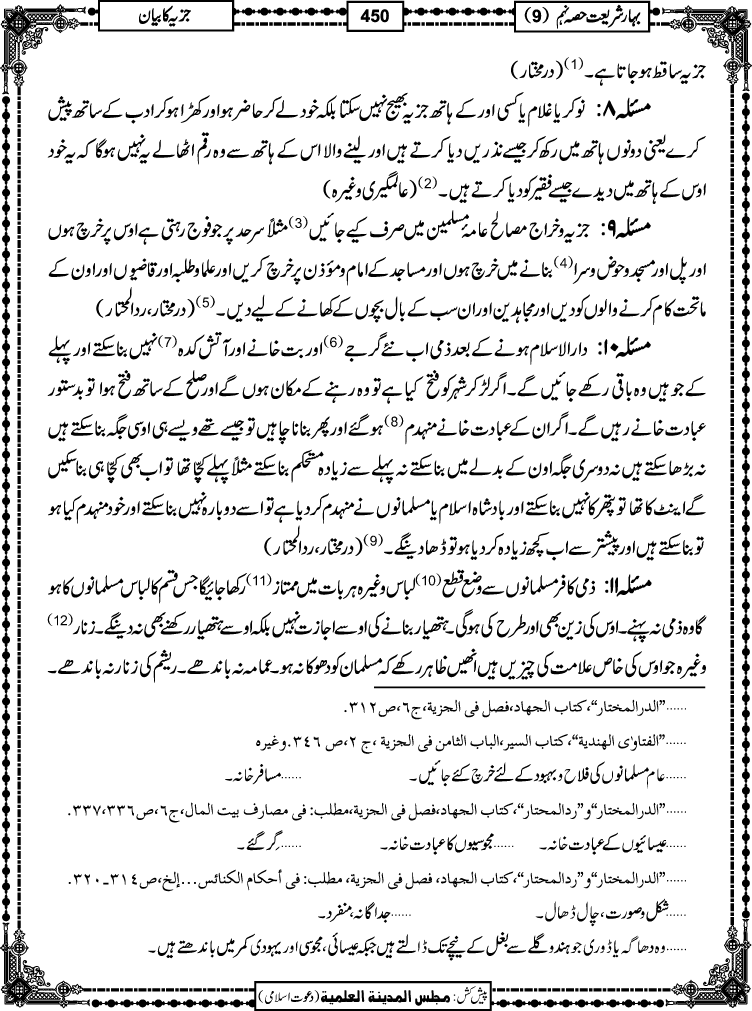 بہارِ شریعت حصہ نہم (9)
450
جزیہ کا بیان
جزیہ ساقط ہو جاتا ہے۔(1) (درمختار)
مسئلہ ۸: نوکر یا غلام یا کسی اور کے ہاتھ جزیہ بھیج نہیں سکتا بلکہ خود لے کر حاضر ہو اور کھڑا ہو کر ادب کے ساتھ پیش
کرے یعنی دونوں ہاتھ میں رکھ کر جیسے نذریں دیا کرتے ہیں اور لینے والا اس کے ہاتھ سے وہ رقم اٹھالے یہ نہیں ہوگا کہ یہ خود
اوس کے ہاتھ میں دیدے جیسے فقیر کو دیا کرتے ہیں۔(2) (عالمگیری وغیرہ)
مسئلہ ۹: جزیہ و خراج مصالح عامۂ مسلمین میں صرف کیے جائیں(3) مثلاً سرحد پر جو فوج رہتی ہے اوس پر خرچ ہوں
اور پل اور مسجد و حوض و سرا(4) بنانے میں خرچ ہوں اور مساجد کے امام و مؤذن پر خرچ کریں اور علما و طلبہ اور قاضیوں اور اون کے
ماتحت کام کرنے والوں کو دیں اور مجاہدین اور ان سب کے بال بچوں کے کھانے کے لیے دیں۔(5) (درمختار، ردالمحتار)
مسئلہ ۱۰: دارالاسلام ہونے کے بعد ذمی اب نئے گرجے(6) اور بت خانے اور آتش کدہ(7) نہیں بنا سکتے اور پہلے
کے جو ہیں وہ باقی رکھے جائیں گے۔ اگر لڑ کر شہر کو فتح کیا ہے تو وہ رہنے کے مکان ہوں گے اور صلح کے ساتھ فتح ہوا تو بدستور
عبادت خانے رہیں گے۔ اگر ان کے عبادت خانے منہدم(8) ہو گئے اور پھر بنانا چاہیں تو جیسے تھے ویسے ہی اوسی جگہ بنا سکتے ہیں
نہ بڑھا سکتے ہیں نہ دوسری جگہ اون کے بدلے میں بنا سکتے نہ پہلے سے زیادہ مستحکم بنا سکتے مثلاً پہلے کچّا تھا تو اب بھی کچّا ہی بنا سکیں
گے اینٹ کا تھا تو پتھر کا نہیں بنا سکتے اور بادشاہ اسلام یا مسلمانوں نے منہدم کر دیا ہے تو اسے دوبارہ نہیں بنا سکتے اور خود منہدم کیا ہو
تو بنا سکتے ہیں اور پیشتر سے اب کچھ زیادہ کر دیا ہو تو ڈھادینگے۔(9) (درمختار، ردالمحتار)
مسئلہ ۱۱: ذمی کافر مسلمانوں سے وضع قطع(10) لباس وغیرہ ہر بات میں ممتاز(11) رکھا جائیگا جس قسم کا لباس مسلمانوں کا ہو
گا وہ ذمی نہ پہنے۔ اوس کی زین بھی اور طرح کی ہوگی۔ ہتھیار بنانے کی اوسے اجازت نہیں بلکہ اوسے ہتھیار رکھنے بھی نہ دینگے۔ زنار(12)
وغیرہ جو اوس کی خاص علامت کی چیزیں ہیں انھیں ظاہر رکھے کہ مسلمان کو دھوکا نہ ہو۔ عمامہ نہ باندھے۔ ریشم کی زنار نہ باندھے۔
......"الدرالمختار"، کتاب الجهاد، فصل فی الجزیة، ج٦، ص٣١٢.
......"الفتاوی الھندیة"، کتاب السیر، الباب الثامن فی الجزیة، ج ٢، ص ٣٤٦. وغیرہ
......عام مسلمانوں کی فلاح و بہبود کے لئے خرچ کئے جائیں۔ ......مسافر خانہ۔
......"الدرالمختار" و "ردالمحتار"، کتاب الجهاد، فصل فی الجزیة، مطلب: فی مصارف بیت المال، ج٦، ص٣٣٦، ٣٣٧.
......عیسائیوں کے عبادت خانہ۔ ......مجوسیوں کا عبادت خانہ۔ ......گر گئے۔
......"الدرالمختار" و "ردالمحتار"، کتاب الجهاد، فصل فی الجزیة، مطلب: فی أحکام الکنائس...إلخ، ص٣١٤۔٣٢٠.
......شکل و صورت، چال ڈھال۔ ......جداگانہ، منفرد۔
......وہ دھاگہ یا ڈوری جو ہندو گلے سے بغل کے نیچے تک ڈالتے ہیں جبکہ عیسائی، مجوسی اور یہودی کمر میں باندھتے ہیں۔
پیش کش: مجلس المدينة العلمية (دعوت اسلامی)